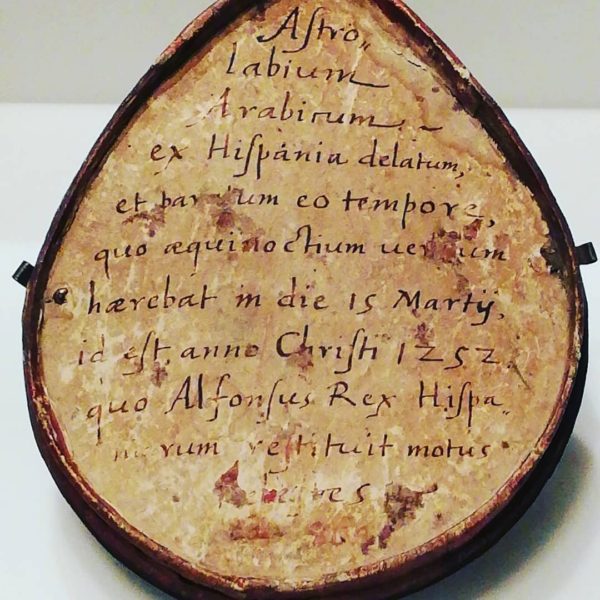 Astro„
labium
Arabicum
ex Hispania delatum,
et eo tempore,
quo æquinoctium
hærebat in die 15 Martij,
id est anno Christi 1252
quo Alfonsus Rex Hispa„
restituit motus